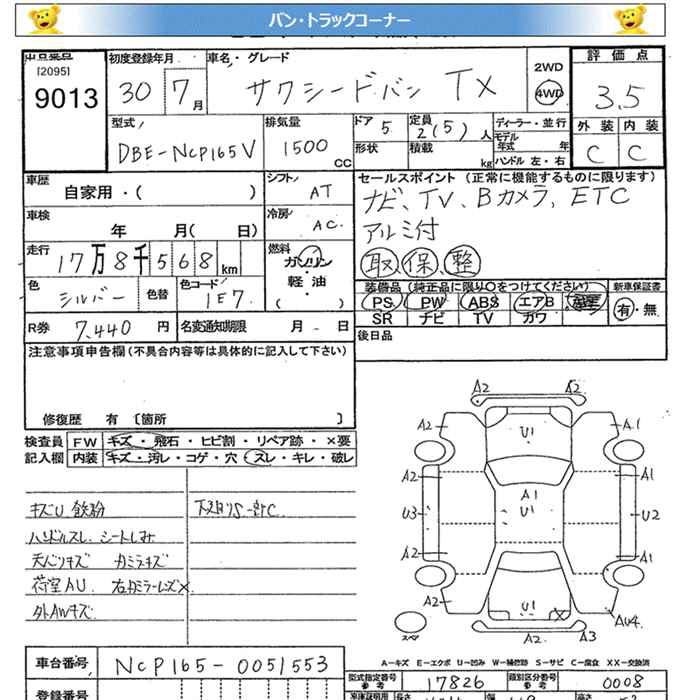 バン・トラックコーナー
出品番号 初度登録年月 車名・グレード 2WD 評価点
[2095]
9013 30 7月 サクシードバン TX 4WD 3.5
型式 排気量 ドア 定員 ディーラー・並行 外装 内装
DBE-NCP165V 1500cc 5 2(5)人 モデル年式 年 C C
形状 積載 kg ハンドル 左・右
車歴 自家用・( ) シフト AT セールスポイント (正常に機能するものに限ります)
ナビ、TV、Bカメラ、ETC
車検 年 月( 日) 冷房 AC アルミ付
走行 17万8千568km 燃料 ガソリン・軽油 取 保 整
色 シルバー 色替 色コード 1E7 装備品 (純正品に限り○をつけてください) 新車保証書
PS PW ABS エアB 有・無
R券 7,440円 名変通知期限 月 日 SR ナビ TV カワ
注意事項申告欄(不具合内容等は具体的に記入して下さい) 後日品
修復歴 有 〔箇所 〕
検査員 FW キズ・飛石・ヒビ割・リペア跡・×要
記入欄 内装 キズ・汚レ・コゲ・穴・スレ・キレ・破レ
キズU 鉄粉 下廻りS
ハンドルスレ シートしみ
天バリキズ
荷室AU 右ドアミラーレンズX
外AWキズ
A2 A2
A2 U1 A.1
A2 A1 A1
U3 U1 U2
A2 A1
A2 U1 X AU4
スペア A2 A3
A―キズ E―エクボ U―凹み W―補修跡 S―サビ C―腐食 XX―交換済
車台番号 NCP165-0051553 型式指定番号 参考 17826 類別区分番号 参考 0008
登録番号 長さ 幅 高さ